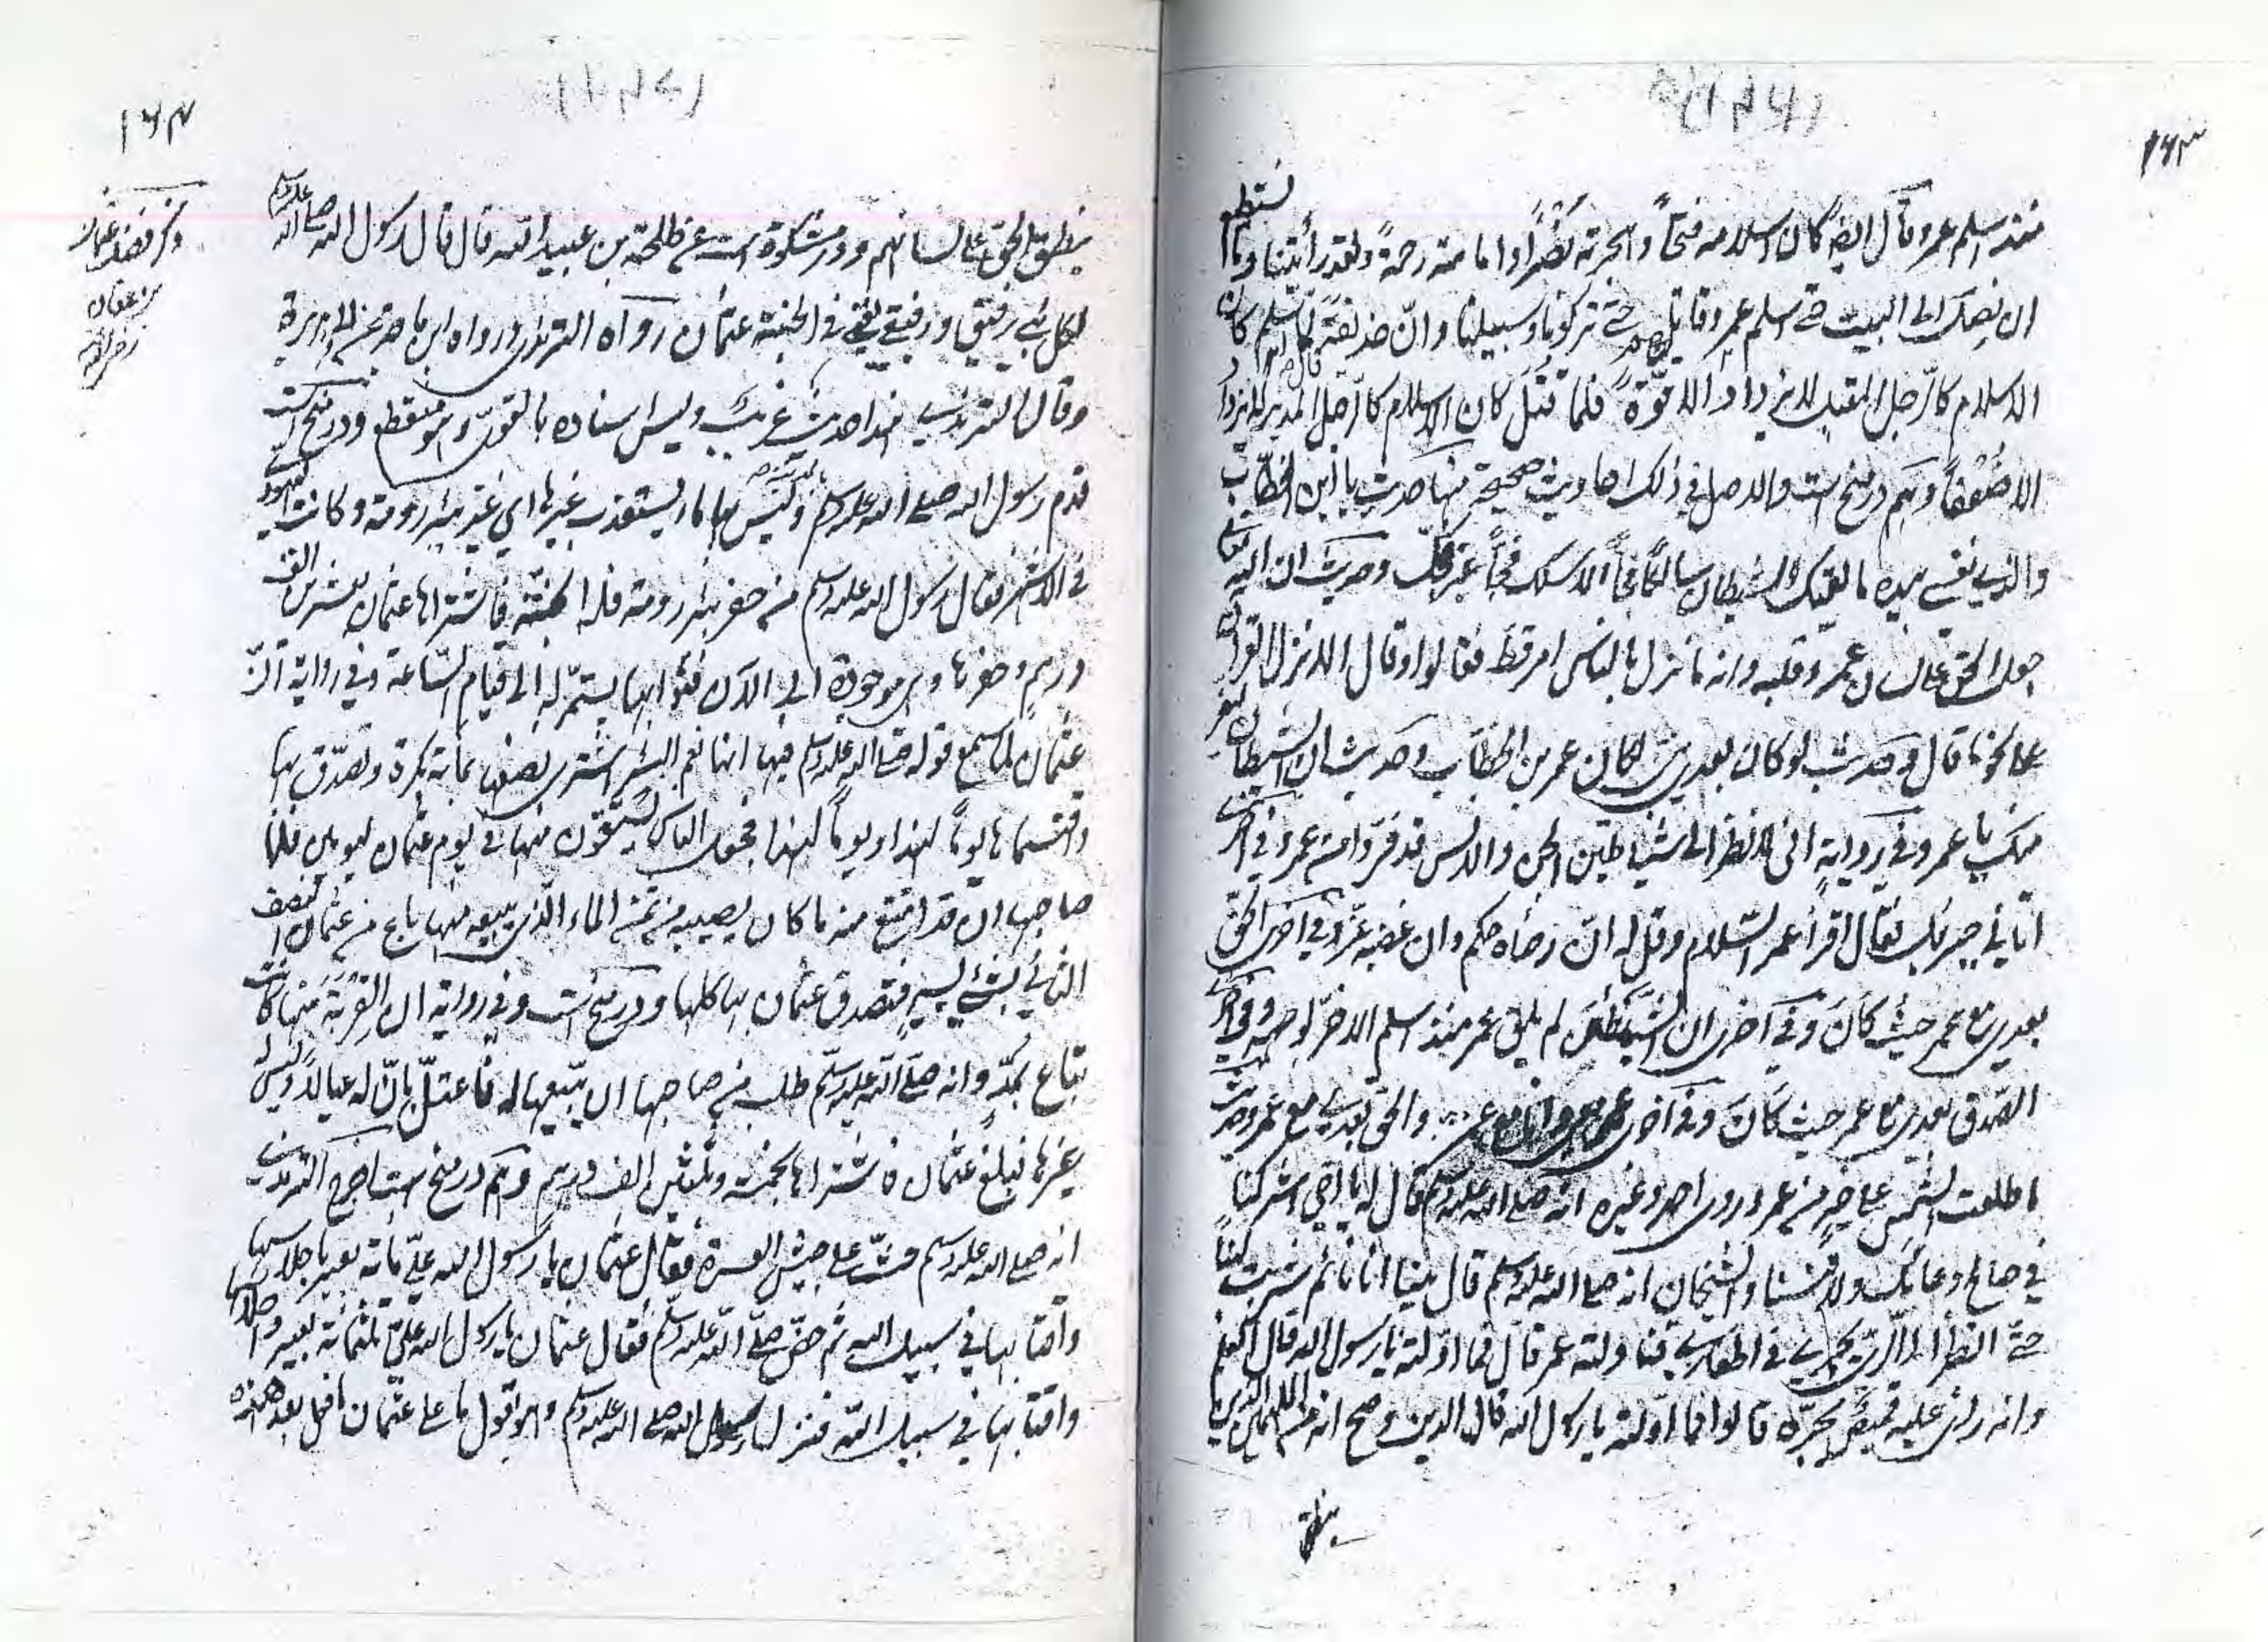 ۱۶۳
منذ اسلم عمر وقال ايضا كان اسلامه فتحاً والهجرته نصراً وامامته رحمةً ولقد رأيتنا وما نستطيع
ان نصلى الى البيت حتى اسلم عمر وقاتلهم حتى تركونا وسبيلنا وانّ حذيفة قال لما اسلم عمر كان
الاسلام كالرّجل المقبل لا يزداد الا قوّة فلما قتل كان الاسلام كالرّجل المدبر لا يزداد
الا ضعفاً وهم در منح است والاصل في ذلك احاديث صحيحة منها حديث يا ابن الخطّاب
والذي نفسي بيده ما لقيك الشيطان سالكاً فجاً الا سلك فجاً غير فجّك وحديث ان الله تعالى
جعل الحق على لسان عمر وقلبه وانه ما نزل بالناس امر قط فقالوا وقال الا نزل القرآن
على نحو ما قال وحديث لو كان بعدي نبيّ لكان عمر بن الخطّاب وحديث ان الشيطان ليفر
منك يا عمر وفي رواية انى لانظر الى شياطين الجن والانس قد فرّوا من عمر وفي اخرى
اتاني جبرئيل فقال اقرأ عمر السّلام وقل له انّ رضاه حكم وان غضبه عزّ وفي اخرى الحق
بعدي مع عمر حيث كان وفي اخرى ان الشيطان لم يلق عمر منذ اسلم الا خرّ لوجهه وفي اخرى
الصّدق بعدي مع عمر حيث كان وفي اخرى عمر معي وانا مع عمر والحق بعدي مع عمر وحديث
ما طلعت الشمس على خير من عمر وروى احمد وغيره انه صلى الله عليه وسلم قال له يا اخي اشركنا
في صالح دعائك ولا تنسنا والشيخان انه صلى الله عليه وسلم قال بينا انا نائم شربت لبناً
حتى انظر الى الرّيّ يجري في اظفاري فناولته عمر قال فما اوّلته يا رسول الله قال العلم
وانه رأى عليه قميص يجرّه قالوا فما اوّلته يا رسول الله قال الدين وصح انه من الملهمين الذين
ينطق
۱۶۴
ذكر فضل عثمان
بن عفان
رضي الله عنه
ينطق الحق على لسانهم ودر مشكوة است عن طلحة بن عبيد الله قال قال رسول الله صلى الله عليه وسلم
لكل نبيّ رفيق ورفيقي يعنى في الجنة عثمان رواه الترمذي ورواه ابن ماجه عن ابي هريرة
وقال الترمذي هذا حديث غريب وليس اسناده بالقوي وهو منقطع ودر منح است
قدم رسول الله صلى الله عليه وسلم المدينة وليس بها ماء يستعذب غيرها اي غير بئر رومة وكانت ليهودي
في الاشهر فقال رسول الله عليه وسلم من حفر بئر رومة فله الجنة فاشتراها عثمان بعشرين الف
درهم وحفرها وهي موجودة الى الآن فثوابها يستمرّ له الى قيام السّاعة وفي رواية انّ
عثمان لما سمع قوله صلى الله عليه وسلم فيها انها نعم البئر اشترى نصفها بمائة بكرة وتصدّق بها
واقتسماها يوماً لهذا ويوماً لهذا فجعل الناس يستقون منها في يوم عثمان ليومين فلما
صاحبها ان قد امتنع منه ما كان يصيبه من ثمن الماء الّذي يبيعه منها باع من عثمان النصف
الثاني بشئ يسير فتصدق عثمان بها كلها ودر منح است وفي رواية ان القربة منها كانت
تباع بمدّ وانه صلّى الله عليه وسلّم طلب من صاحبها ان يبيعها له فاعتلّ بانّ له عيالاً وليس له
غيرها فبلغ عثمان فاشتراها بخمسة وثلثين الف درهم وهم در منح است اخرج الترمذي
انه صلى الله عليه وسلم حثّ على جيش العسرة فقال عثمان يا رسول الله عليّ مائة بعير باحلاسها
واقتابها في سبيل الله ثم حضّ صلّى الله عليه وسلّم فقال عثمان يا رسول الله عليّ ثلثمائة بعير باحلاسها
واقتابها في سبيل الله فنزل رسول الله صلى الله عليه وسلم وهو يقول ما على عثمان ما فعل بعد هذه